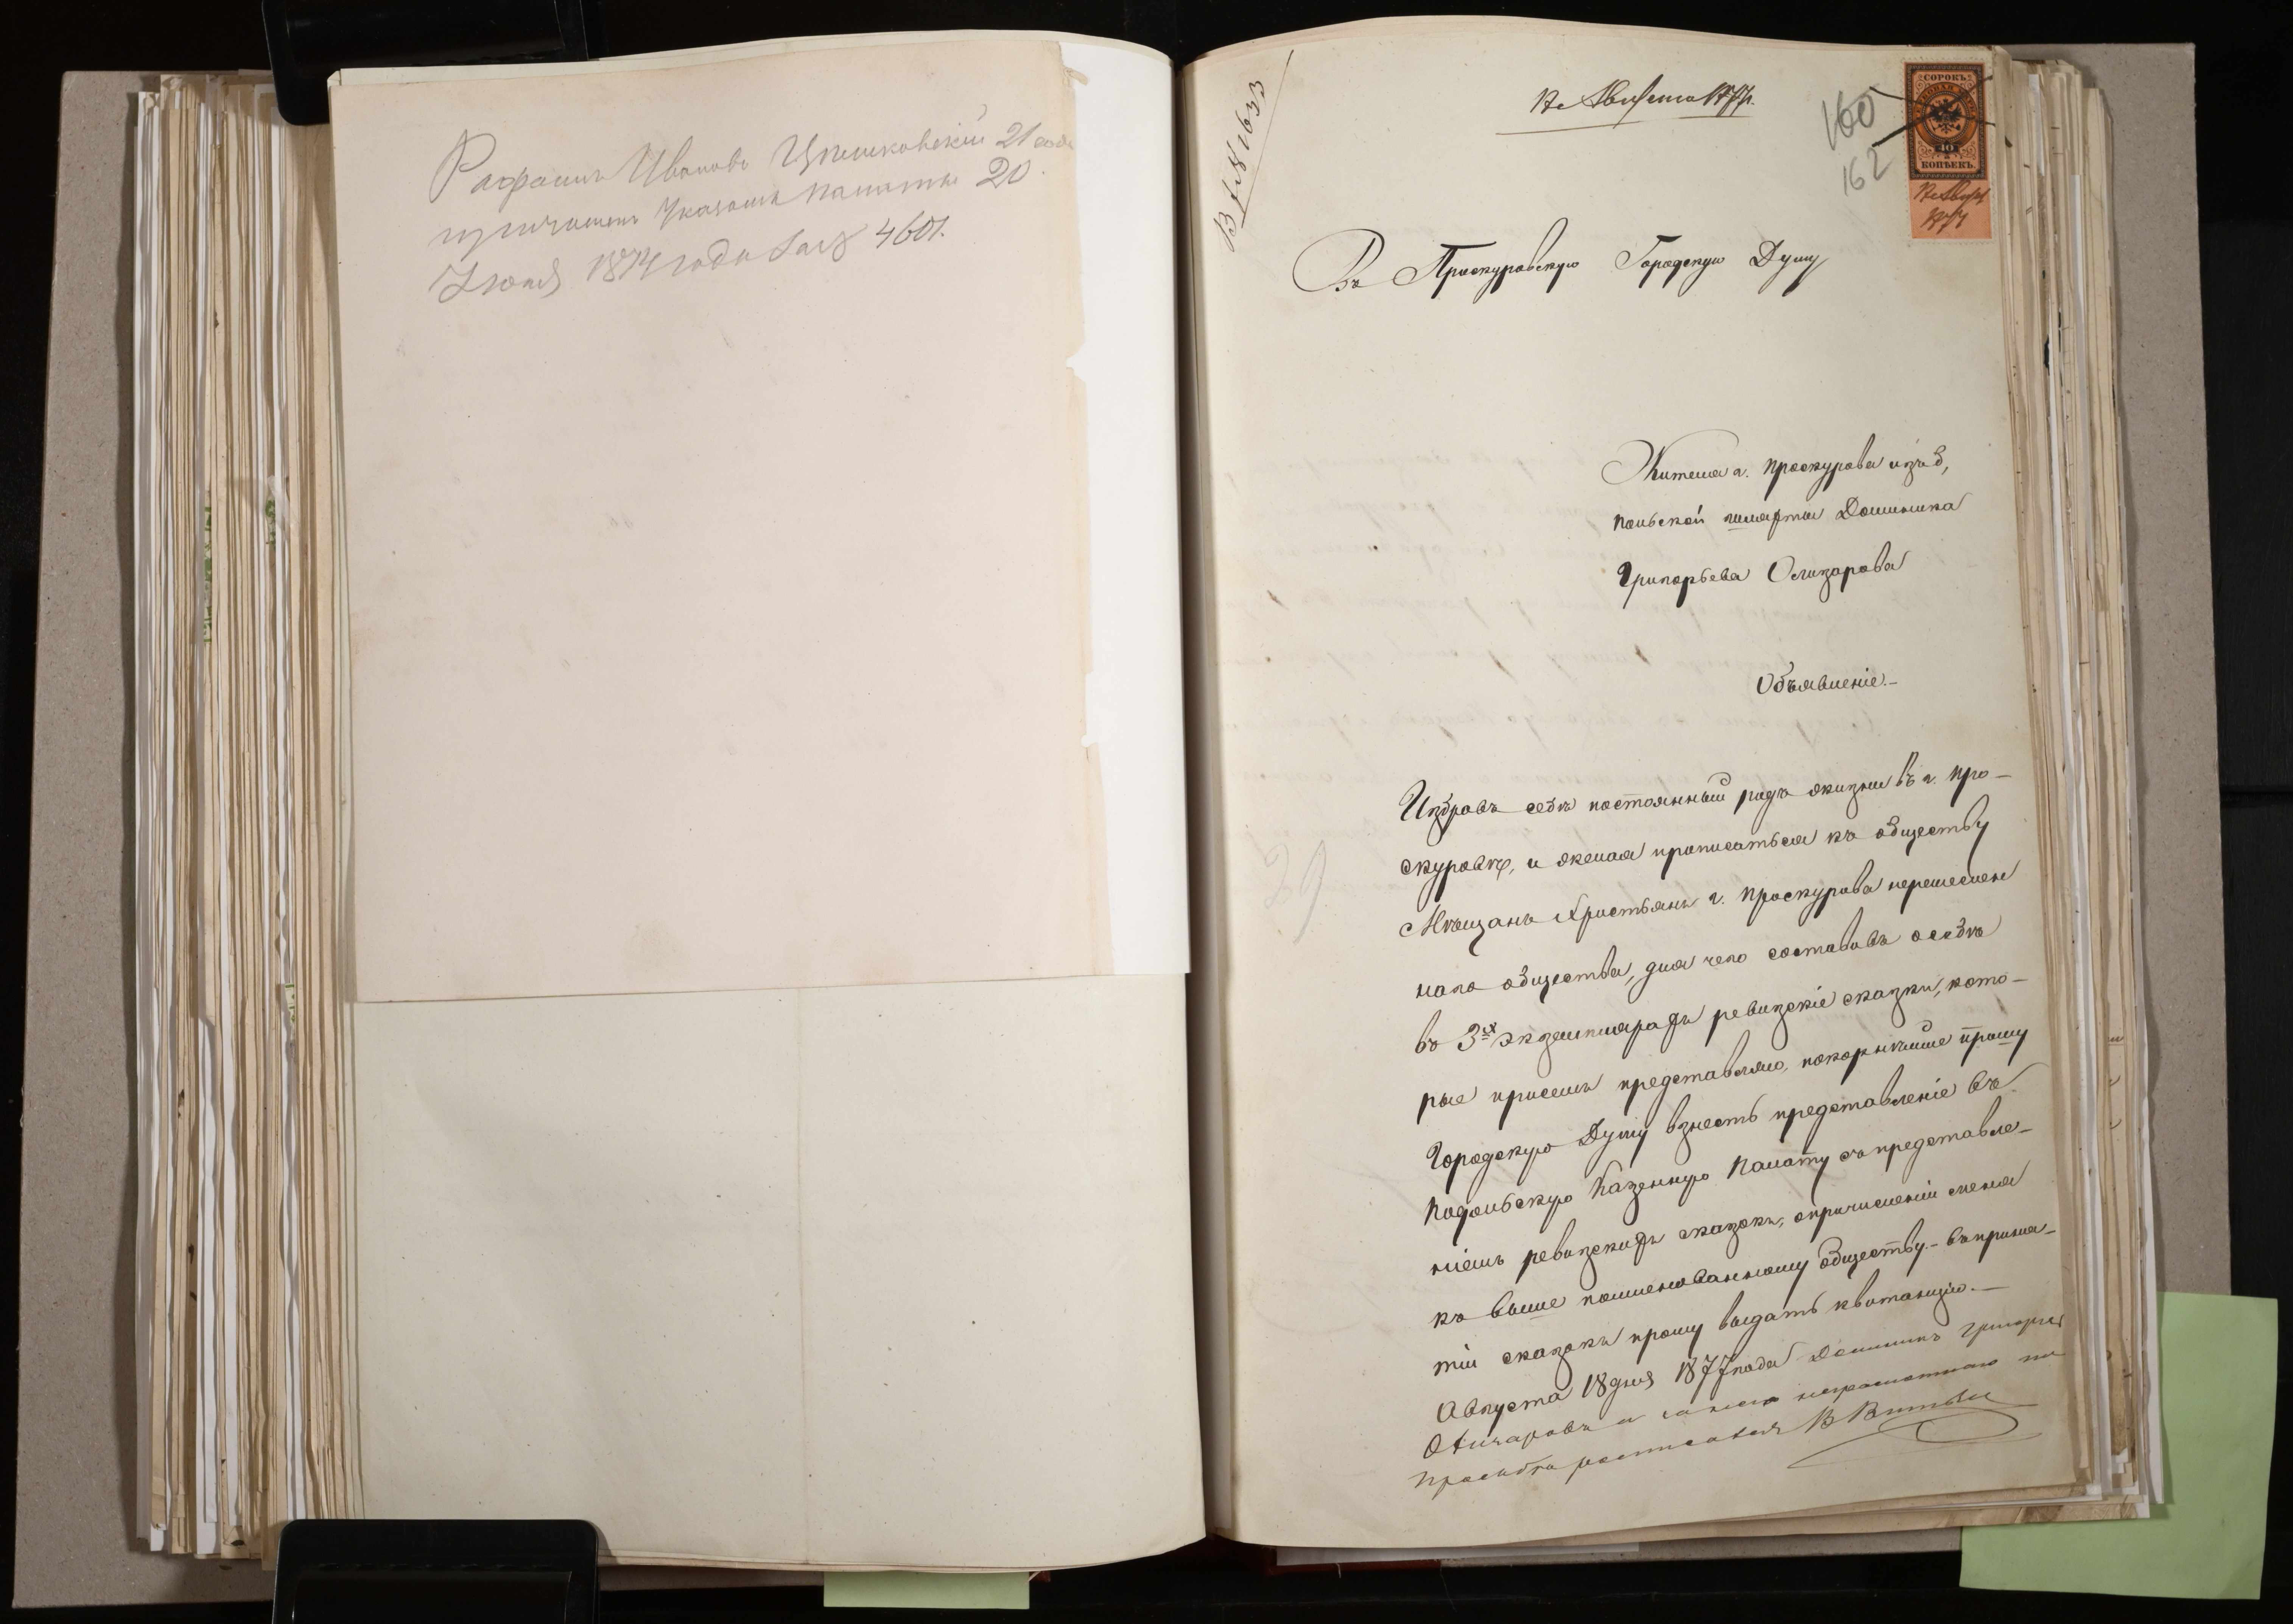 Рафаилъ Ивановъ Цѣшковскій 21 года
причисленъ Указомъ Палаты 20
Іюня 1874 года за № 4601.
В № 1633
18 Августа 1877 г.
160
162
СОРОКЪ
40
КОПѢЕКЪ.
18 Авгус
1877
Въ Проскуровскую Городскую Думу
Жителя г. Проскурова изъ б,
польской шляхты Доминика
Григорьева Олизарова
Объявленіе.-
Избравъ себѣ постоянный родъ жизни въ г. Про-
скуровѣ, и желая приписаться къ обществу
Мѣщанъ Христьянъ г. Проскурова перечислен
наго общества, для чего составивъ о себѣ
въ 3х экземплярахъ ревизскіе сказки, кото-
рые присемъ представляю, покорнѣйше прошу
Городскую Думу взнесть представленіе въ
Подольскую Казенную Палату съ представле-
ніемъ ревизскихъ сказокъ, опричисленіи меня
къ выше поименованному обществу.- Въ приня-
тіи сказокъ прошу выдать квитанцію.-
Августа 18 дня 1877 года Доминикъ Григорьев
Олизаровъ а за него неграмотнаго по
прозьбѣ росписался В